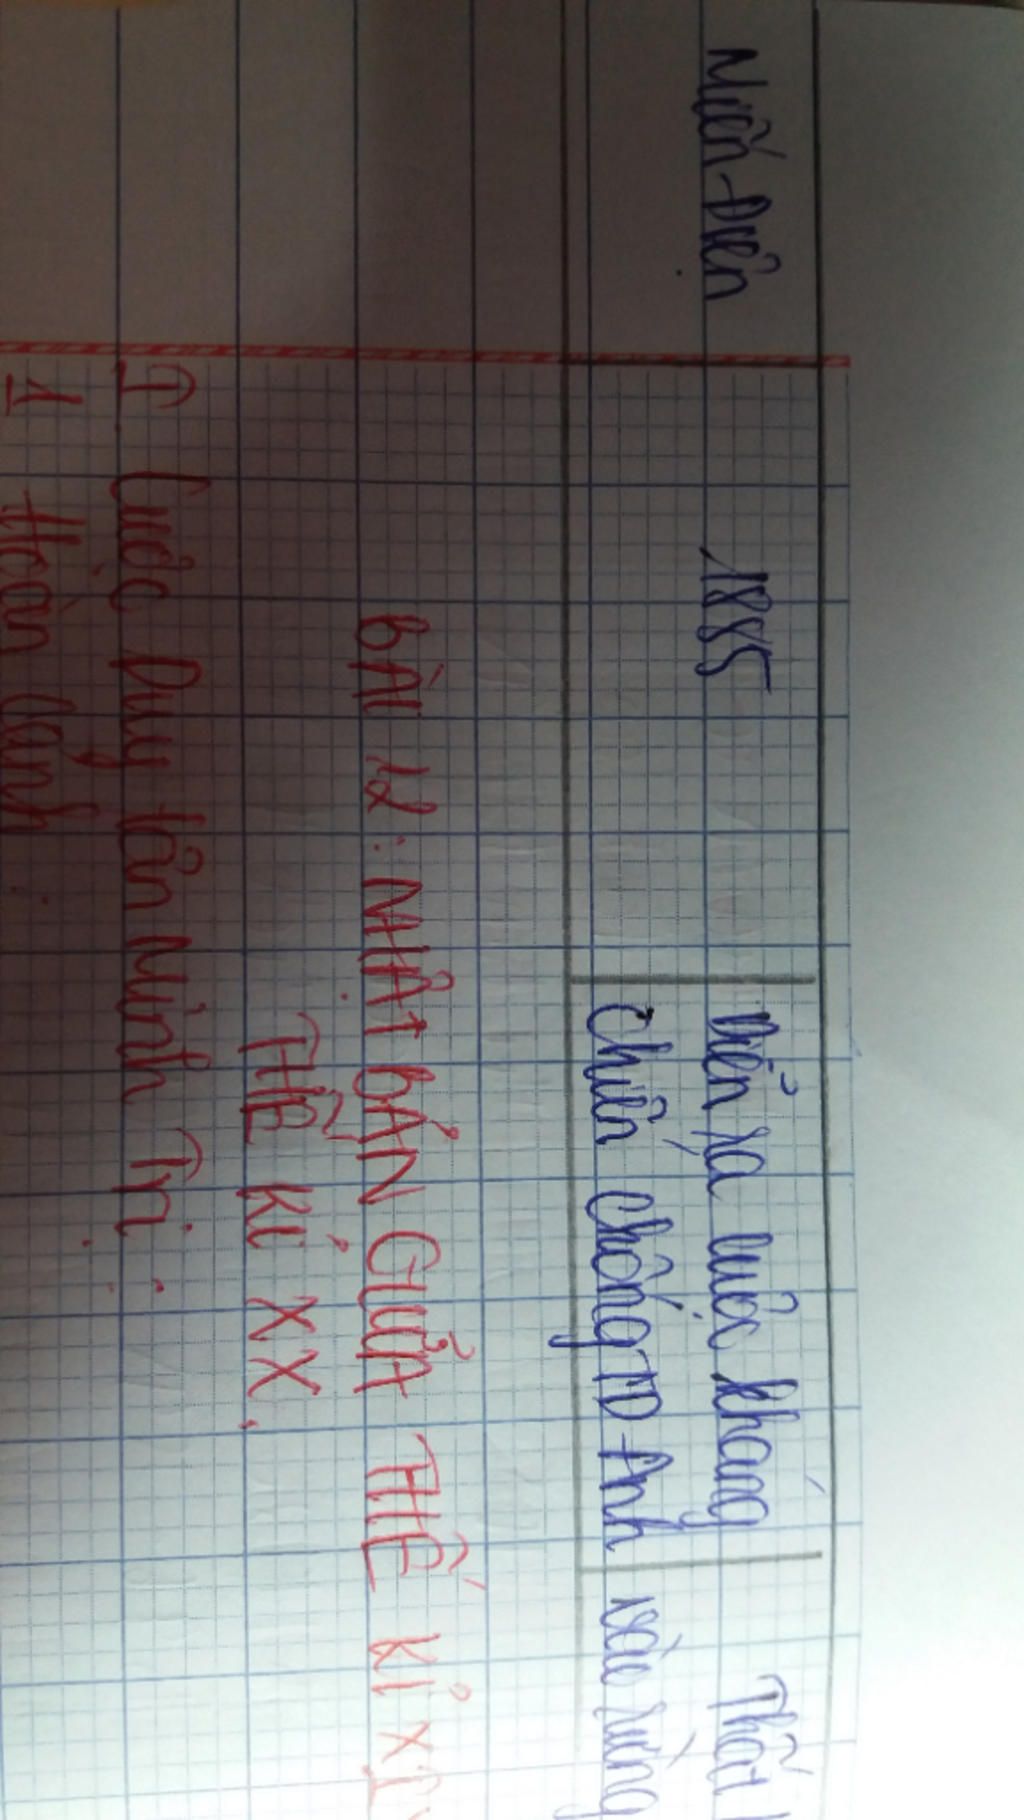 Miến Điện 1885 Diễn ra cuộc kháng Thất
chiến chống TD Anh
BÀI 12: NHẬT BẢN GIỮA THẾ KỈ
THẾ KỈ XX.
I Cuộc Duy tân Minh Trị:
1 Hoàn cảnh: